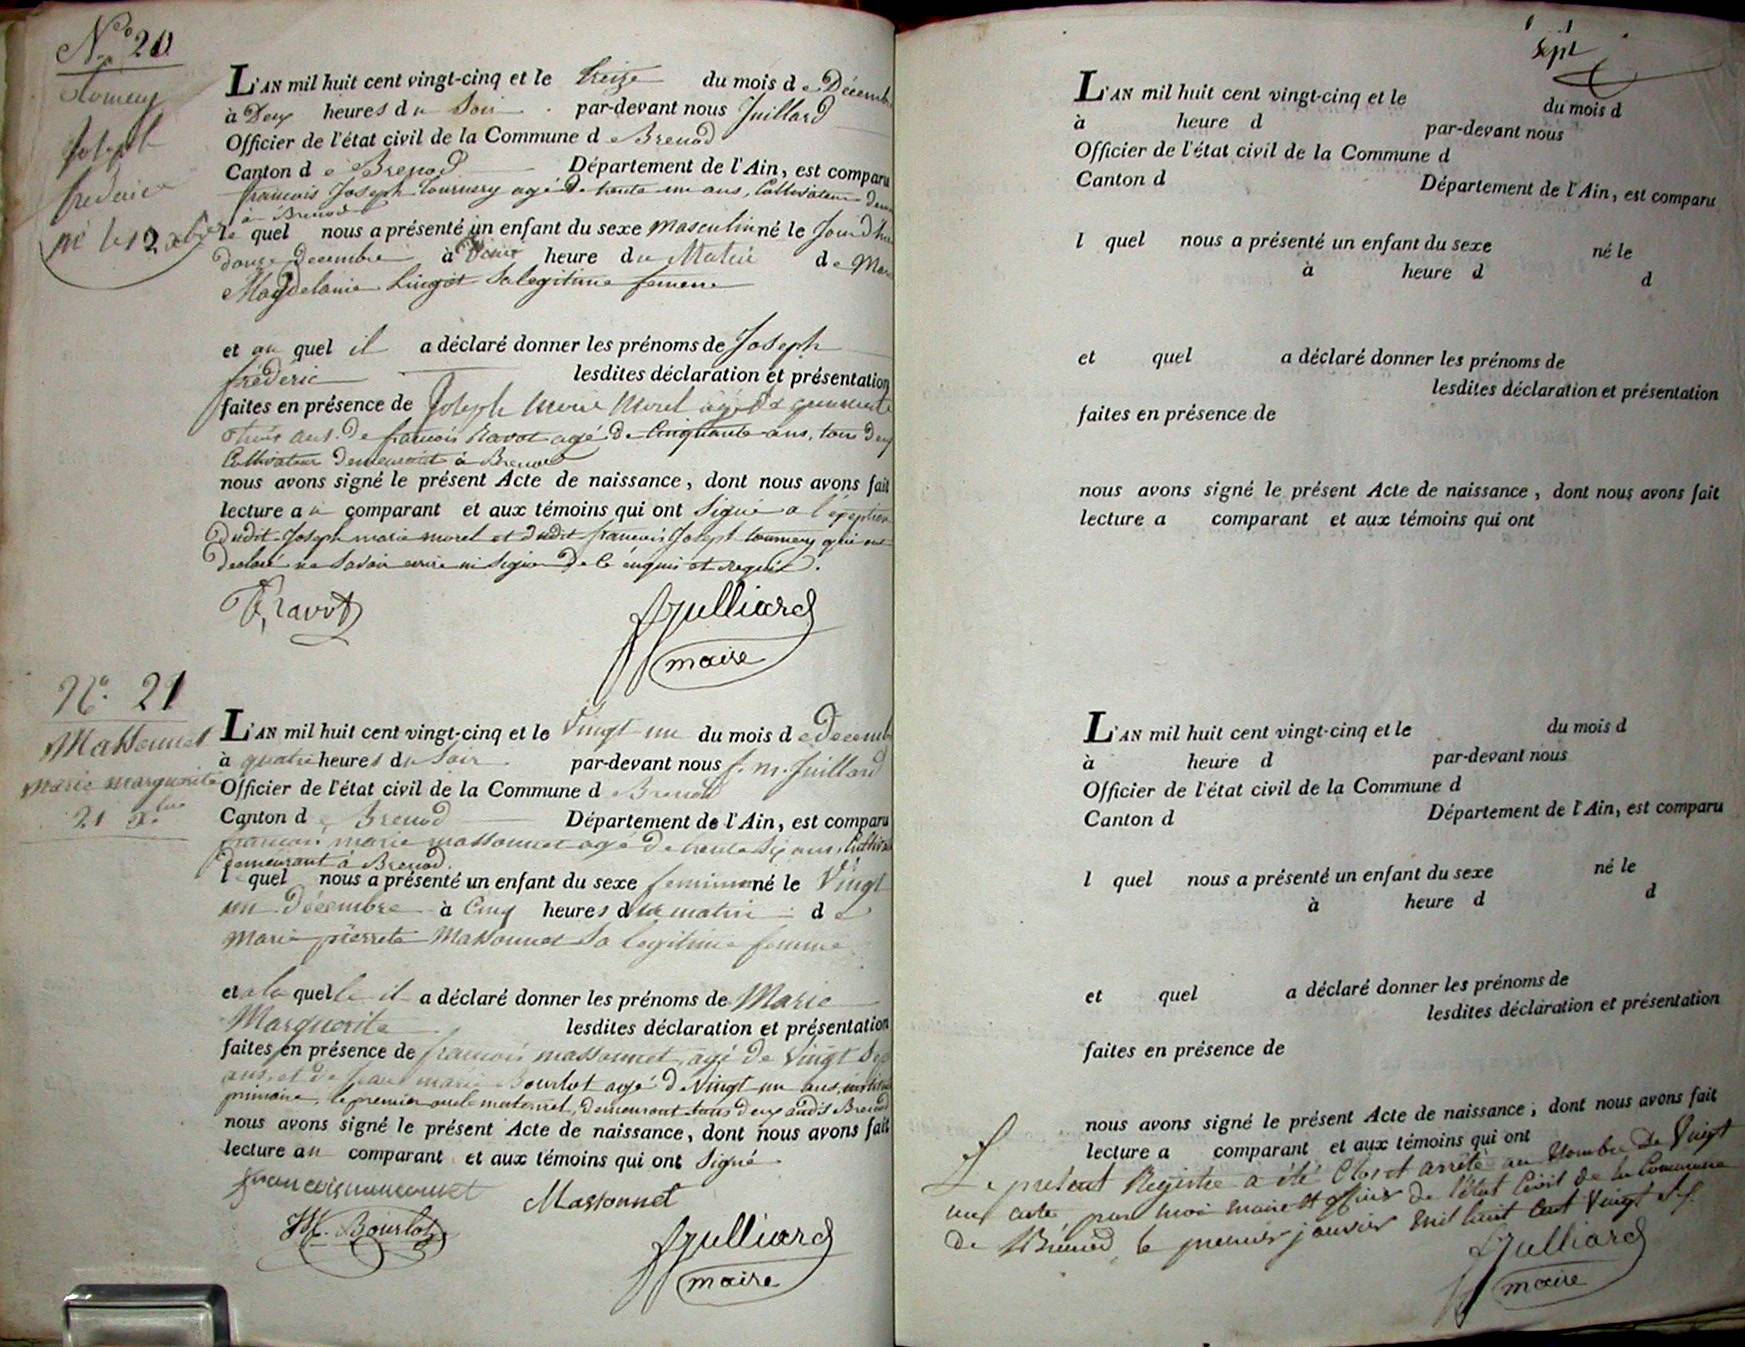 N.º 20
Joseph
frederic
né le 12 xbre
L'AN mil huit cent vingt-cinq et le treize du mois de Décemb
à Deux heures du Soir par-devant nous Juillard
Officier de l'état civil de la Commune de Brenod
Canton de Brenod Département de l'Ain, est comparu
francois Joseph tournery agé de trente un ans, Cultivateur dem
à Brenod
le quel nous a présenté un enfant du sexe masculin né le Jourd'hui
douze Decembre à heure du Matin de Mar
Magdelaine Lingot Sa legitime femme
et au quel il a déclaré donner les prénoms de Joseph
fréderic lesdites déclaration et présentation
faites en présence de Joseph Marie Morel agé de quarante
trois ans. De francois Ravot agé De Cinquante ans, tous deux
Cultivateur Demeurant à Brenod
nous avons signé le présent Acte de naissance, dont nous avons fait
lecture au comparant et aux témoins qui ont Signé a l'exeption
Dudit Joseph marie morel et dudit francois Joseph tournery qui ont
Declaré ne Savoir ecrire ni Signer De ce enquis et requis.
F, ravot
Julliard
maire
N.º 21
Massonnet
Marie marguerite
21 xbre
L'AN mil huit cent vingt-cinq et le Vingt un du mois de decemb
à quatre heures du Soir par-devant nous f. m. Juillard
Officier de l'état civil de la Commune d Brenod
Canton de Brenod Département de l'Ain, est comparu
francois marie massonnet agé De trente Six ans, Cultiva
demeurant à Brenod.
le quel nous a présenté un enfant du sexe feminin né le Vingt
un décembre à Cinq heures du matin de
Marie pierrette Massonnet Sa legitime femme
et a la quelle il a déclaré donner les prénoms de Marie
Marguerite lesdites déclaration et présentation
faites en présence de francois massonnet, agé de Vingt Sep
ans, et de Jean marie Bourlot agé de Vingt un ans, institu
primaire, le premier oncle maternel, demeurant tous deux audit Brenod
nous avons signé le présent Acte de naissance, dont nous avons fait
lecture au comparant et aux témoins qui ont Signé
Massonnet
JM. Bourlot
Julliard
maire
Sept
L'AN mil huit cent vingt-cinq et le du mois d
à heure d par-devant nous
Officier de l'état civil de la Commune d
Canton d Département de l'Ain, est comparu
l quel nous a présenté un enfant du sexe né le
à heure d d
et quel a déclaré donner les prénoms de
lesdites déclaration et présentation
faites en présence de
nous avons signé le présent Acte de naissance, dont nous avons fait
lecture a comparant et aux témoins qui ont
L'AN mil huit cent vingt-cinq et le du mois d
à heure d par-devant nous
Officier de l'état civil de la Commune d
Canton d Département de l'Ain, est comparu
l quel nous a présenté un enfant du sexe né le
à heure d d
et quel a déclaré donner les prénoms de
lesdites déclaration et présentation
faites en présence de
nous avons signé le présent Acte de naissance, dont nous avons fait
lecture a comparant et aux témoins qui ont
Le présent Registre a été Clos et arrêté au Nombre de Vingt
un acte, par moi maire et officier de l'état Civil de la Commune
de Brenod, le premier janvier mil huit cent Vingt Six.
Julliard
maire